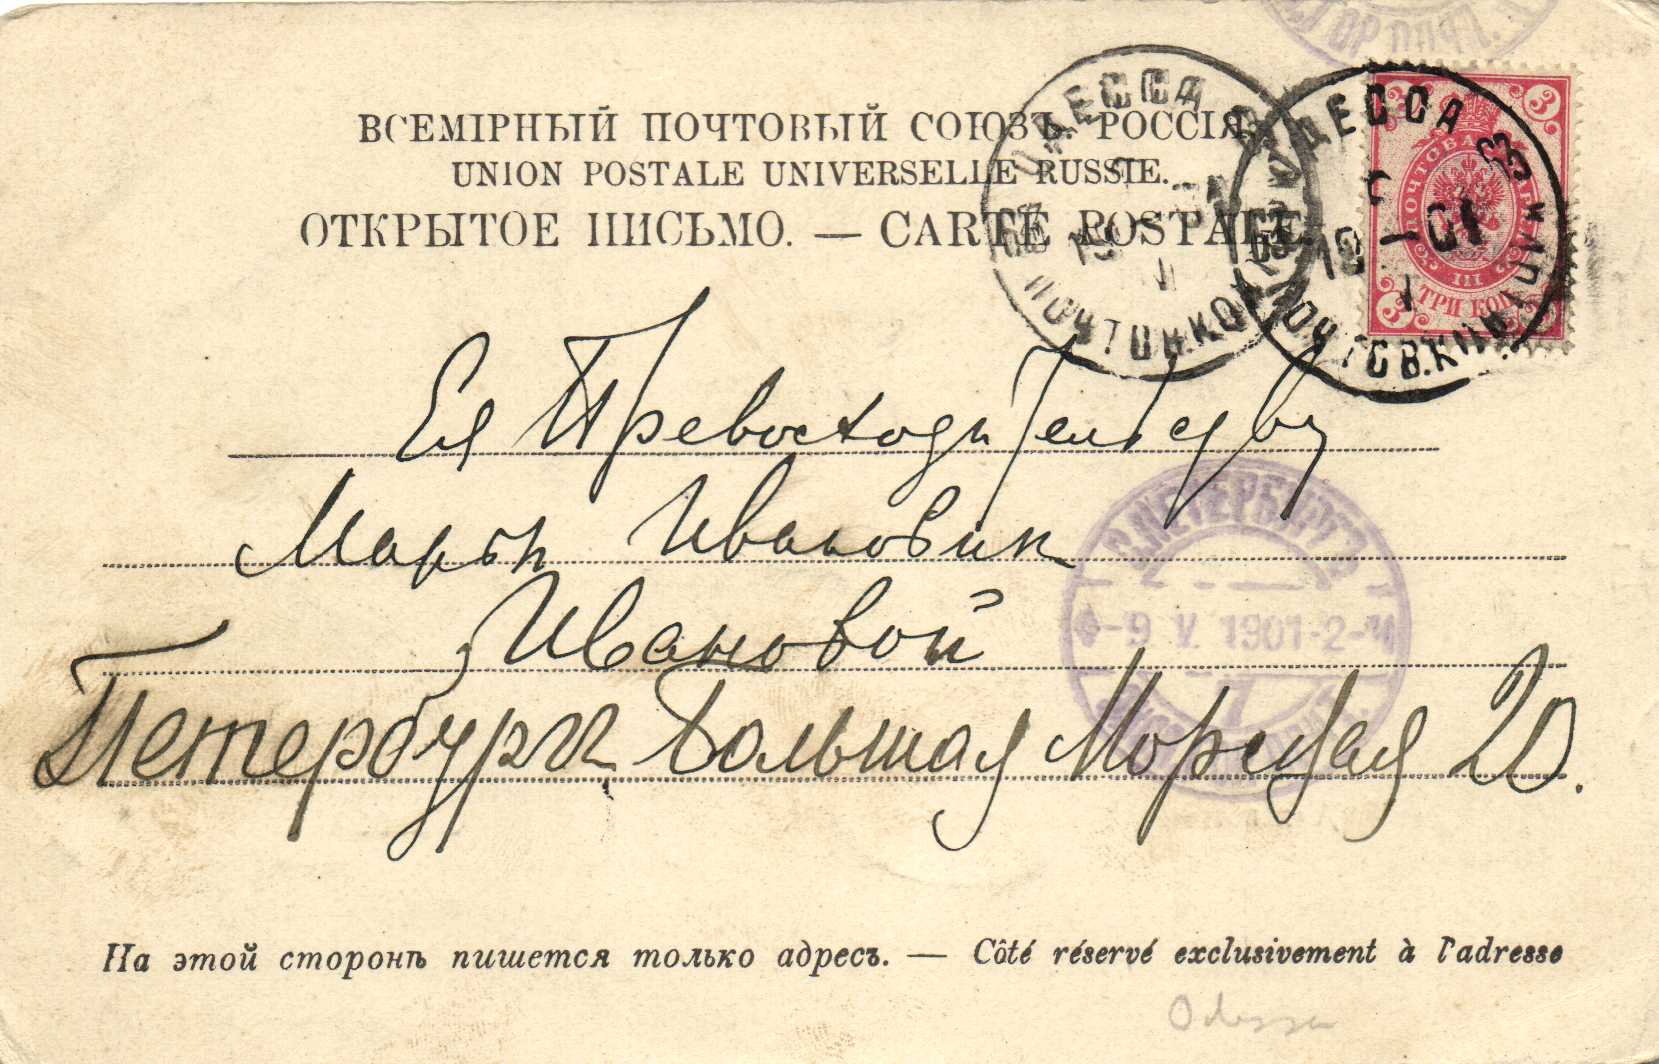 ВСЕМІРНЫЙ ПОЧТОВЫЙ СОЮЗЪ. РОССІЯ.
UNION POSTALE UNIVERSELLE RUSSIE.
ОТКРЫТОЕ ПИСЬМО. — CARTE POSTALE.
ОДЕССА
ПОЧТОВ. КОН
ОДЕССА
ПОЧТОВ. КОН
3 3
ПОЧТОВАЯ МАРКА
ТРИ КОП
3
Ея Превосходительству
Марьѣ Ивановнѣ
Ивановой
Петербургъ Большая Морская 20.
С.ПЕТЕРБУРГЪ
-9 V. 1901-2-
7
На этой сторонѣ пишется только адресъ. — Côté réservé exclusivement à l'adresse
Odessa